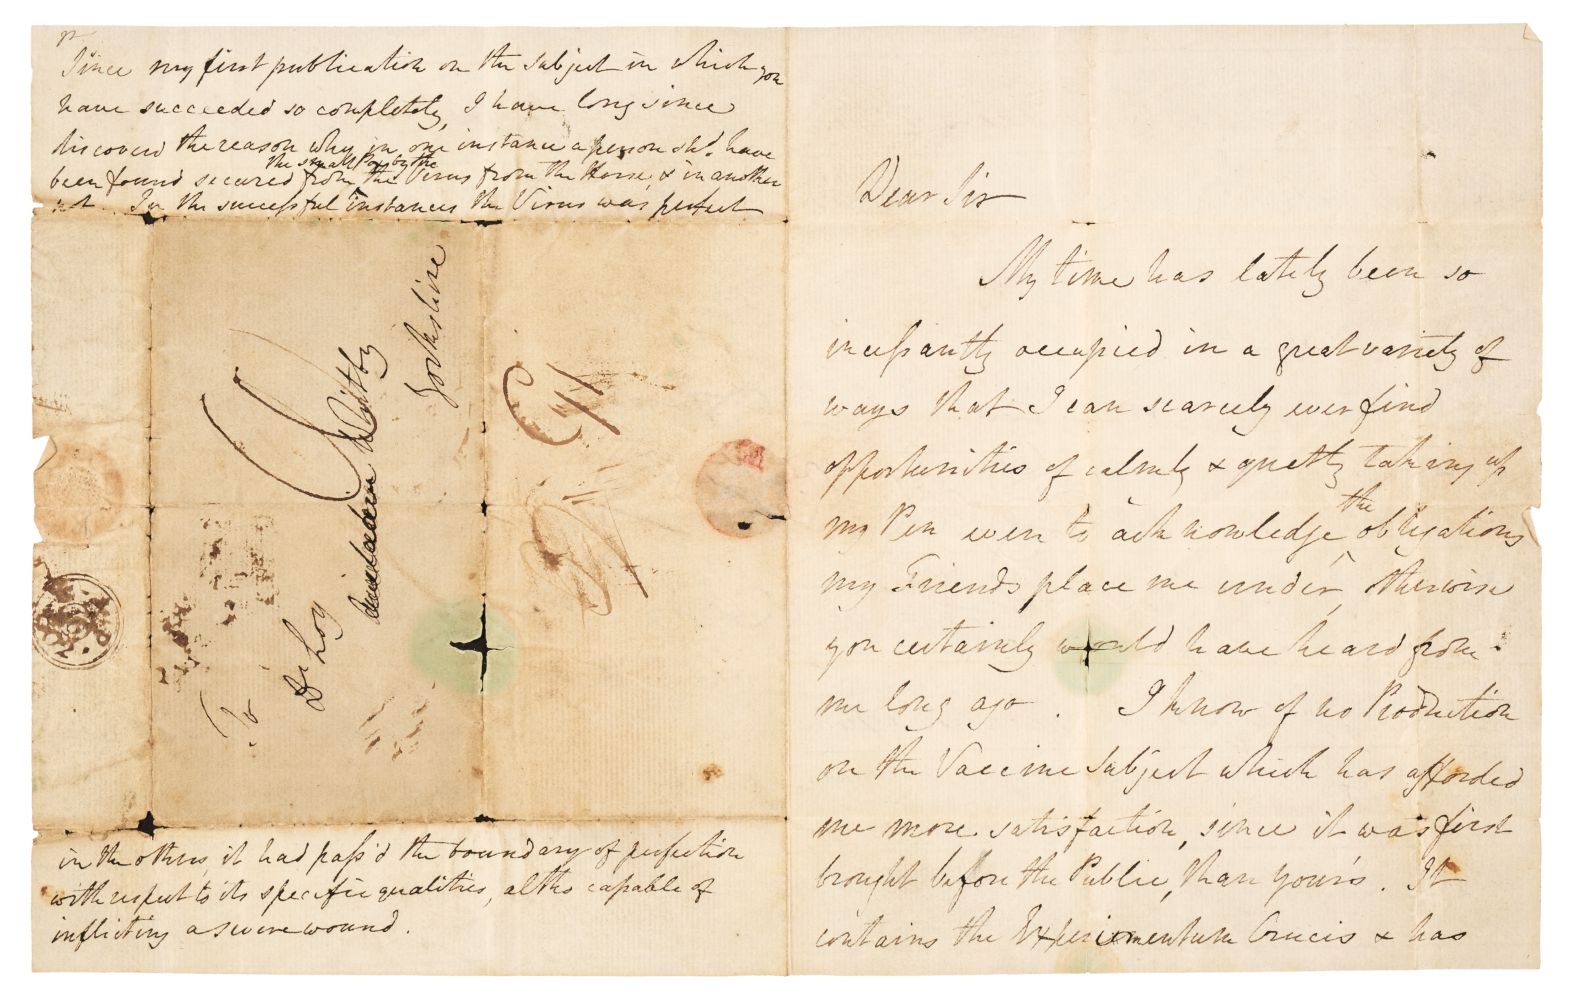 Since my first publication on the subject in which you
have succeeded so completely, I have long since
discover'd the reason why in one instance a person shd. have
the small Pox by the
been found secured from the Virus from the Horse, & in another
not. In the successful instances the Virus was perfect
To
Dr Loy
Whitby
Yorkshire
in the others, it had pass'd the boundary of perfection
with respect to its specific qualities, altho capable of
inflicting a severe wound.
Dear Sir
My time has lately been so
incessantly occupied in a great variety of
ways that I can scarcely ever find
opportunities of calmly & quietly taking up
my Pen even to acknowledge the obligations
my Friends place me under, otherwise
you certainly would have heard from
me long ago. I know of no Production
on the Vaccine Subject which has afforded
me more satisfaction, since it was first
brought before the Public, than yours. It
contains the Experimentum Crucis & has